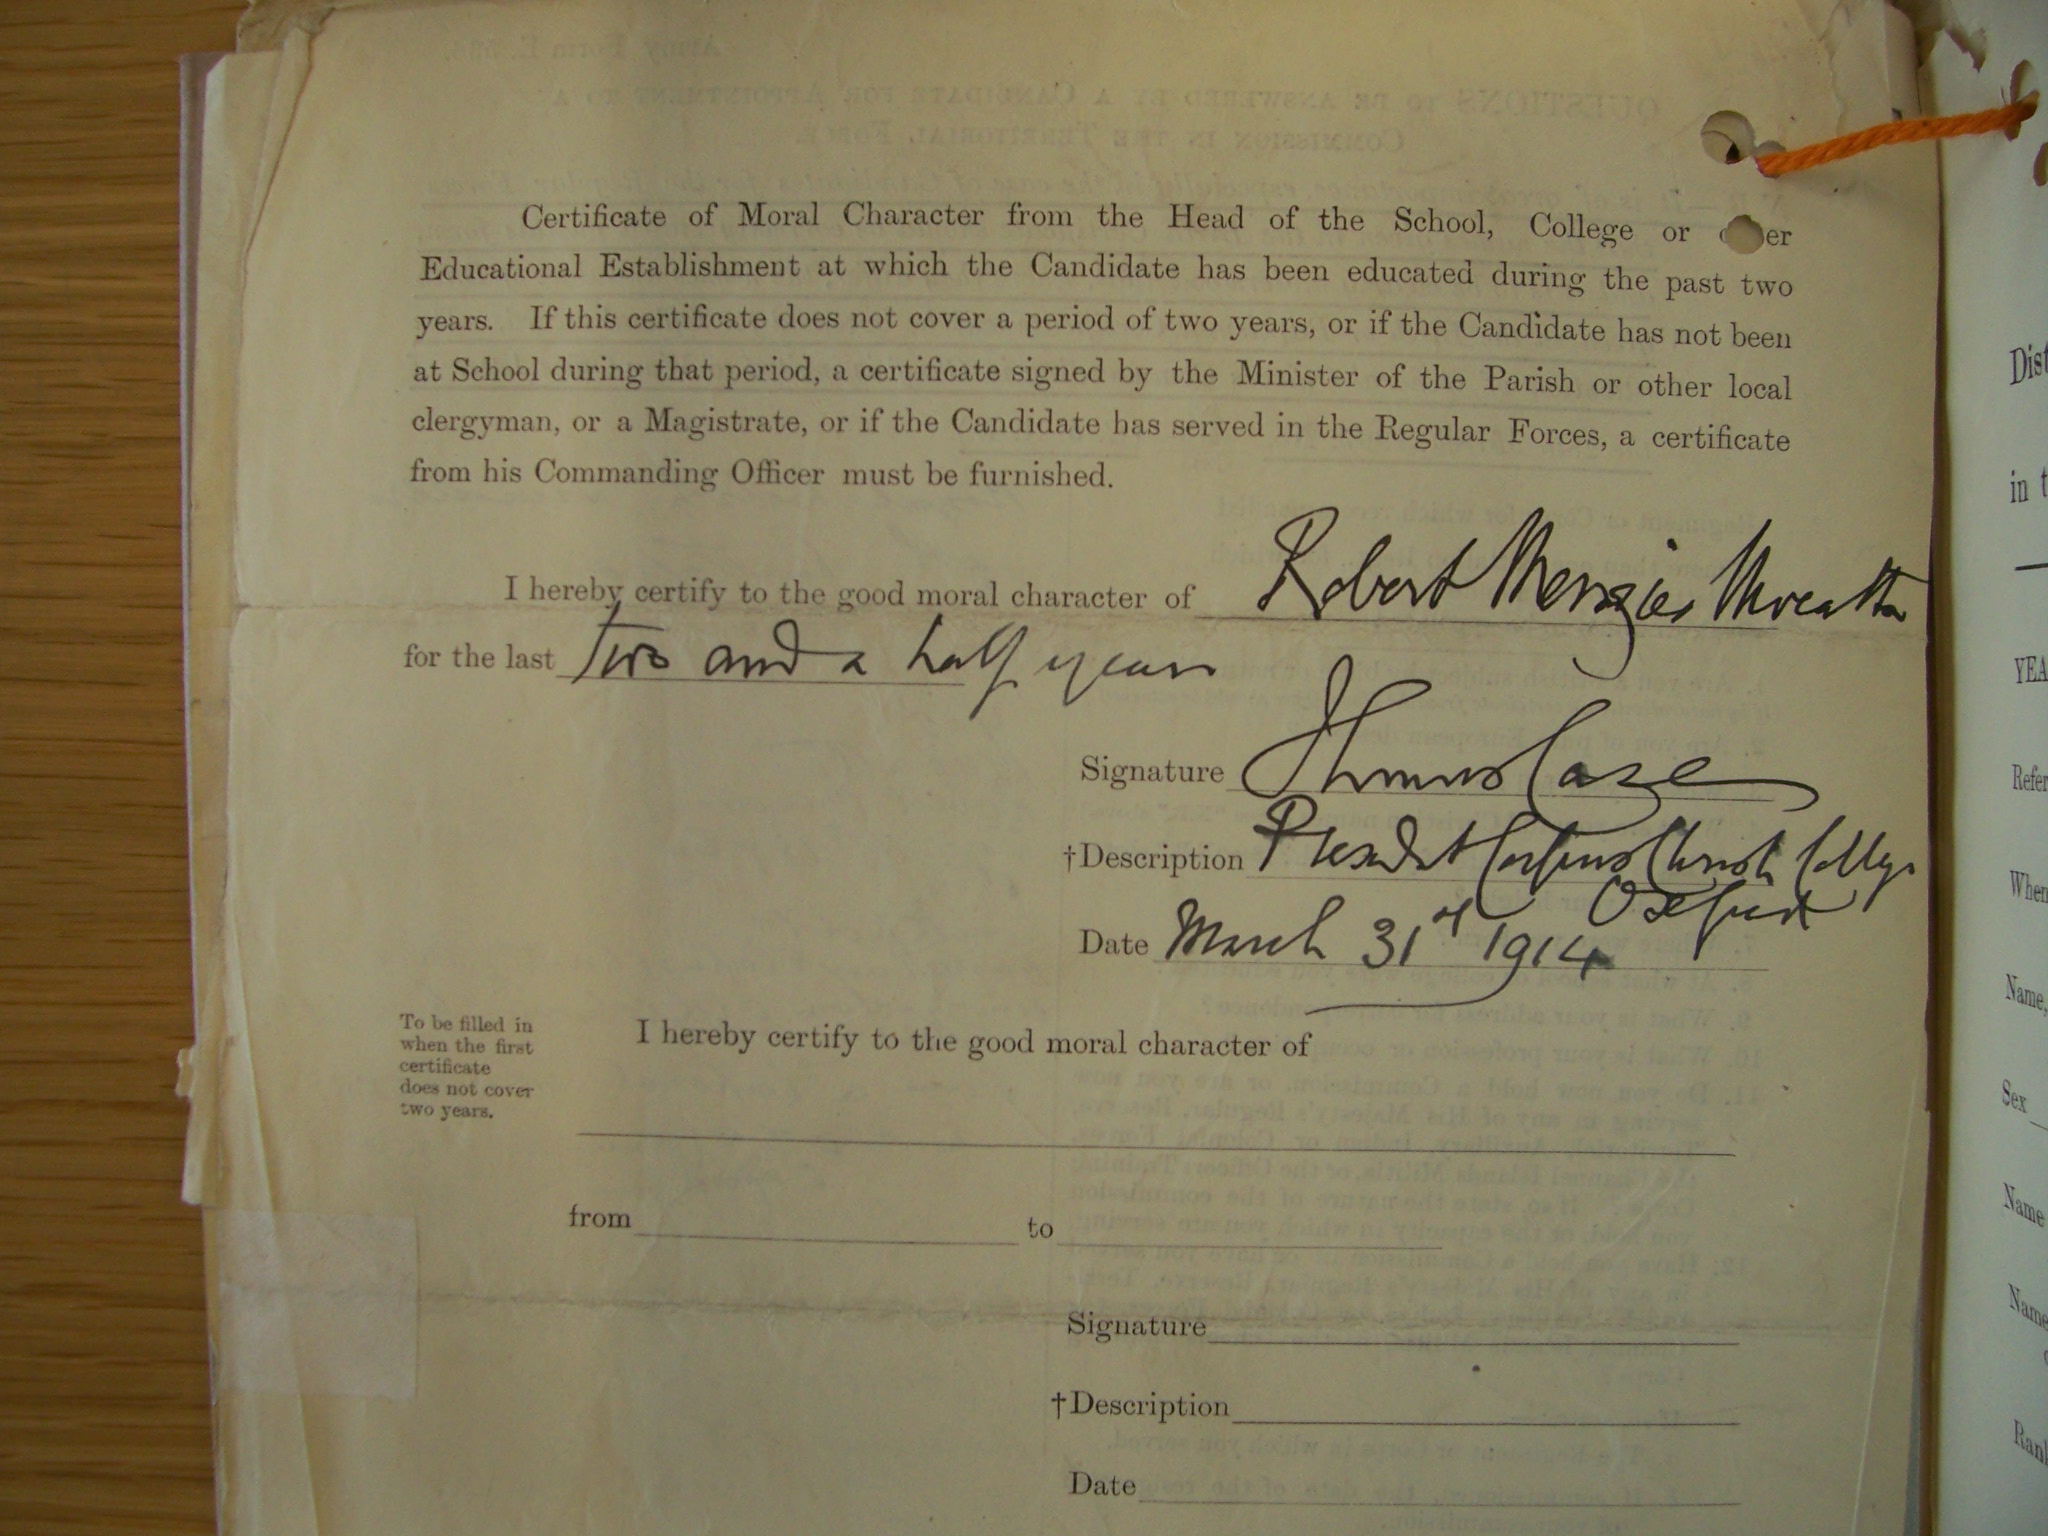 Certificate of Moral Character from the Head of the School, College or er
Educational Establishment at which the Candidate has been educated during the past two
years. If this certificate does not cover a period of two years, or if the Candidate has not been
at School during that period, a certificate signed by the Minister of the Parish or other local
clergyman, or a Magistrate, or if the Candidate has served in the Regular Forces, a certificate
from his Commanding Officer must be furnished.
I hereby certify to the good moral character of Robert Menzies
for the last two and a half years
Signature Thomas Case
†Description President Corpus Christi College
Oxford
Date March 31st 1914
To be filled in
when the first
certificate
does not cover
two years.
I hereby certify to the good moral character of
from to
Signature
†Description
Date
Dist
in t
YEA
Refer
When
Name,
Sex
Name
Name
Rank